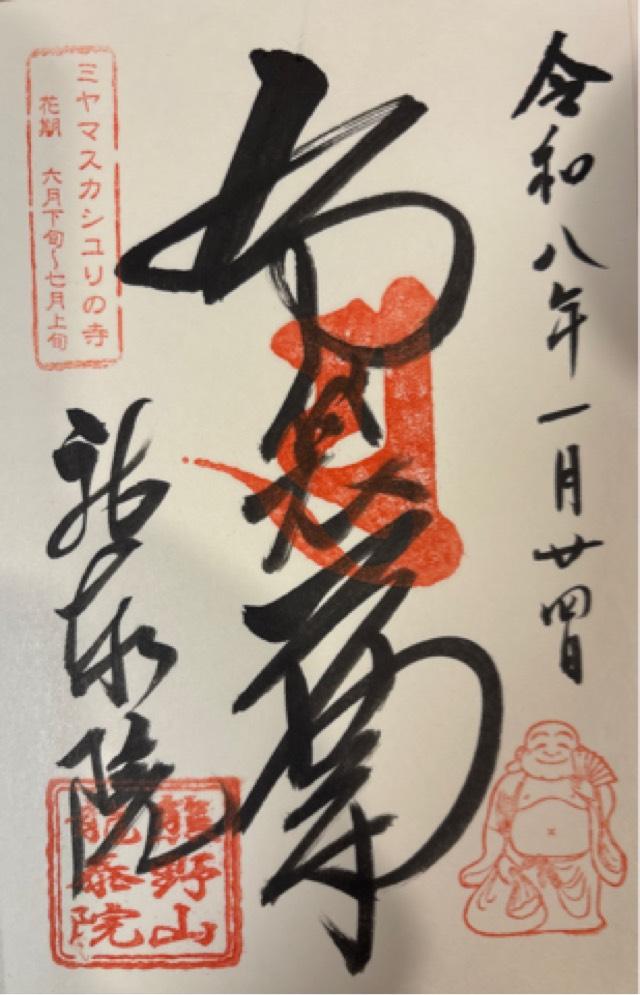 令和八年一月廿四日
布袋尊
ミヤマスカシユリの寺
花期 六月下旬〜七月上旬
龍泰院
熊野山
龍泰院